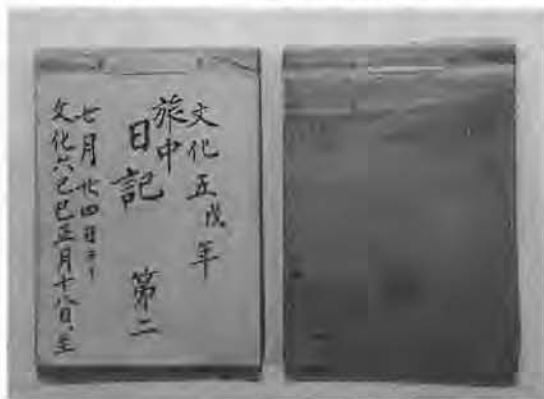 文化五戊年
旅中
日記 第二
七月廿四日ヨリ
文化六己巳正月十八日、至